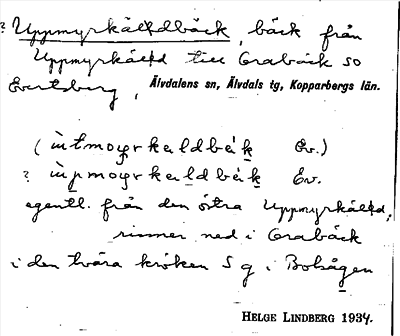 ? Uppmyrkälldbäck, bäck från
Uppmyrkälld till Grabäck so
Evertsberg, Älvdalens sn, Älvdals tg, Kopparbergs län.
(ùtmoyrkaldbèk Öv.)
? ùpmoyrkaldbèk Ev.
egentl. från den östra Uppmyrkälld,
rinner ned i Grabäck
i den tvära kröken S g. i Bohågen
HELGE LINDBERG 1934.